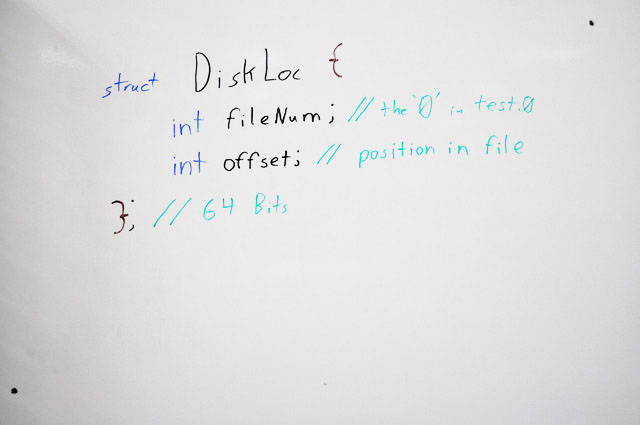 struct DiskLoc {
int fileNum; // the '0' in test.0
int offset; // position in file
}; // 64 Bits